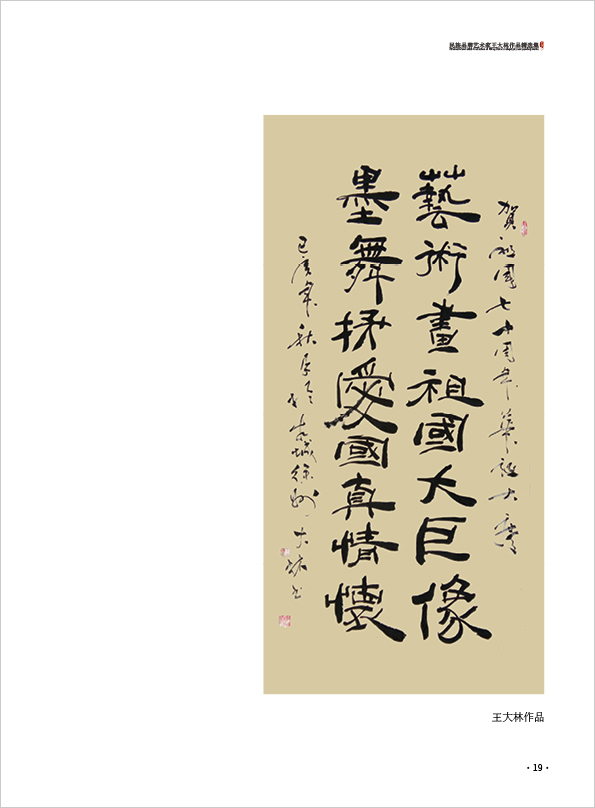 民族品牌艺术家王大林作品精选集
賀祖國七十周年華誕大慶
藝術畫祖國大巨像
墨舞抒愛國真情懷
己亥年秋月於彭城徐州大林书
王大林作品
·19·